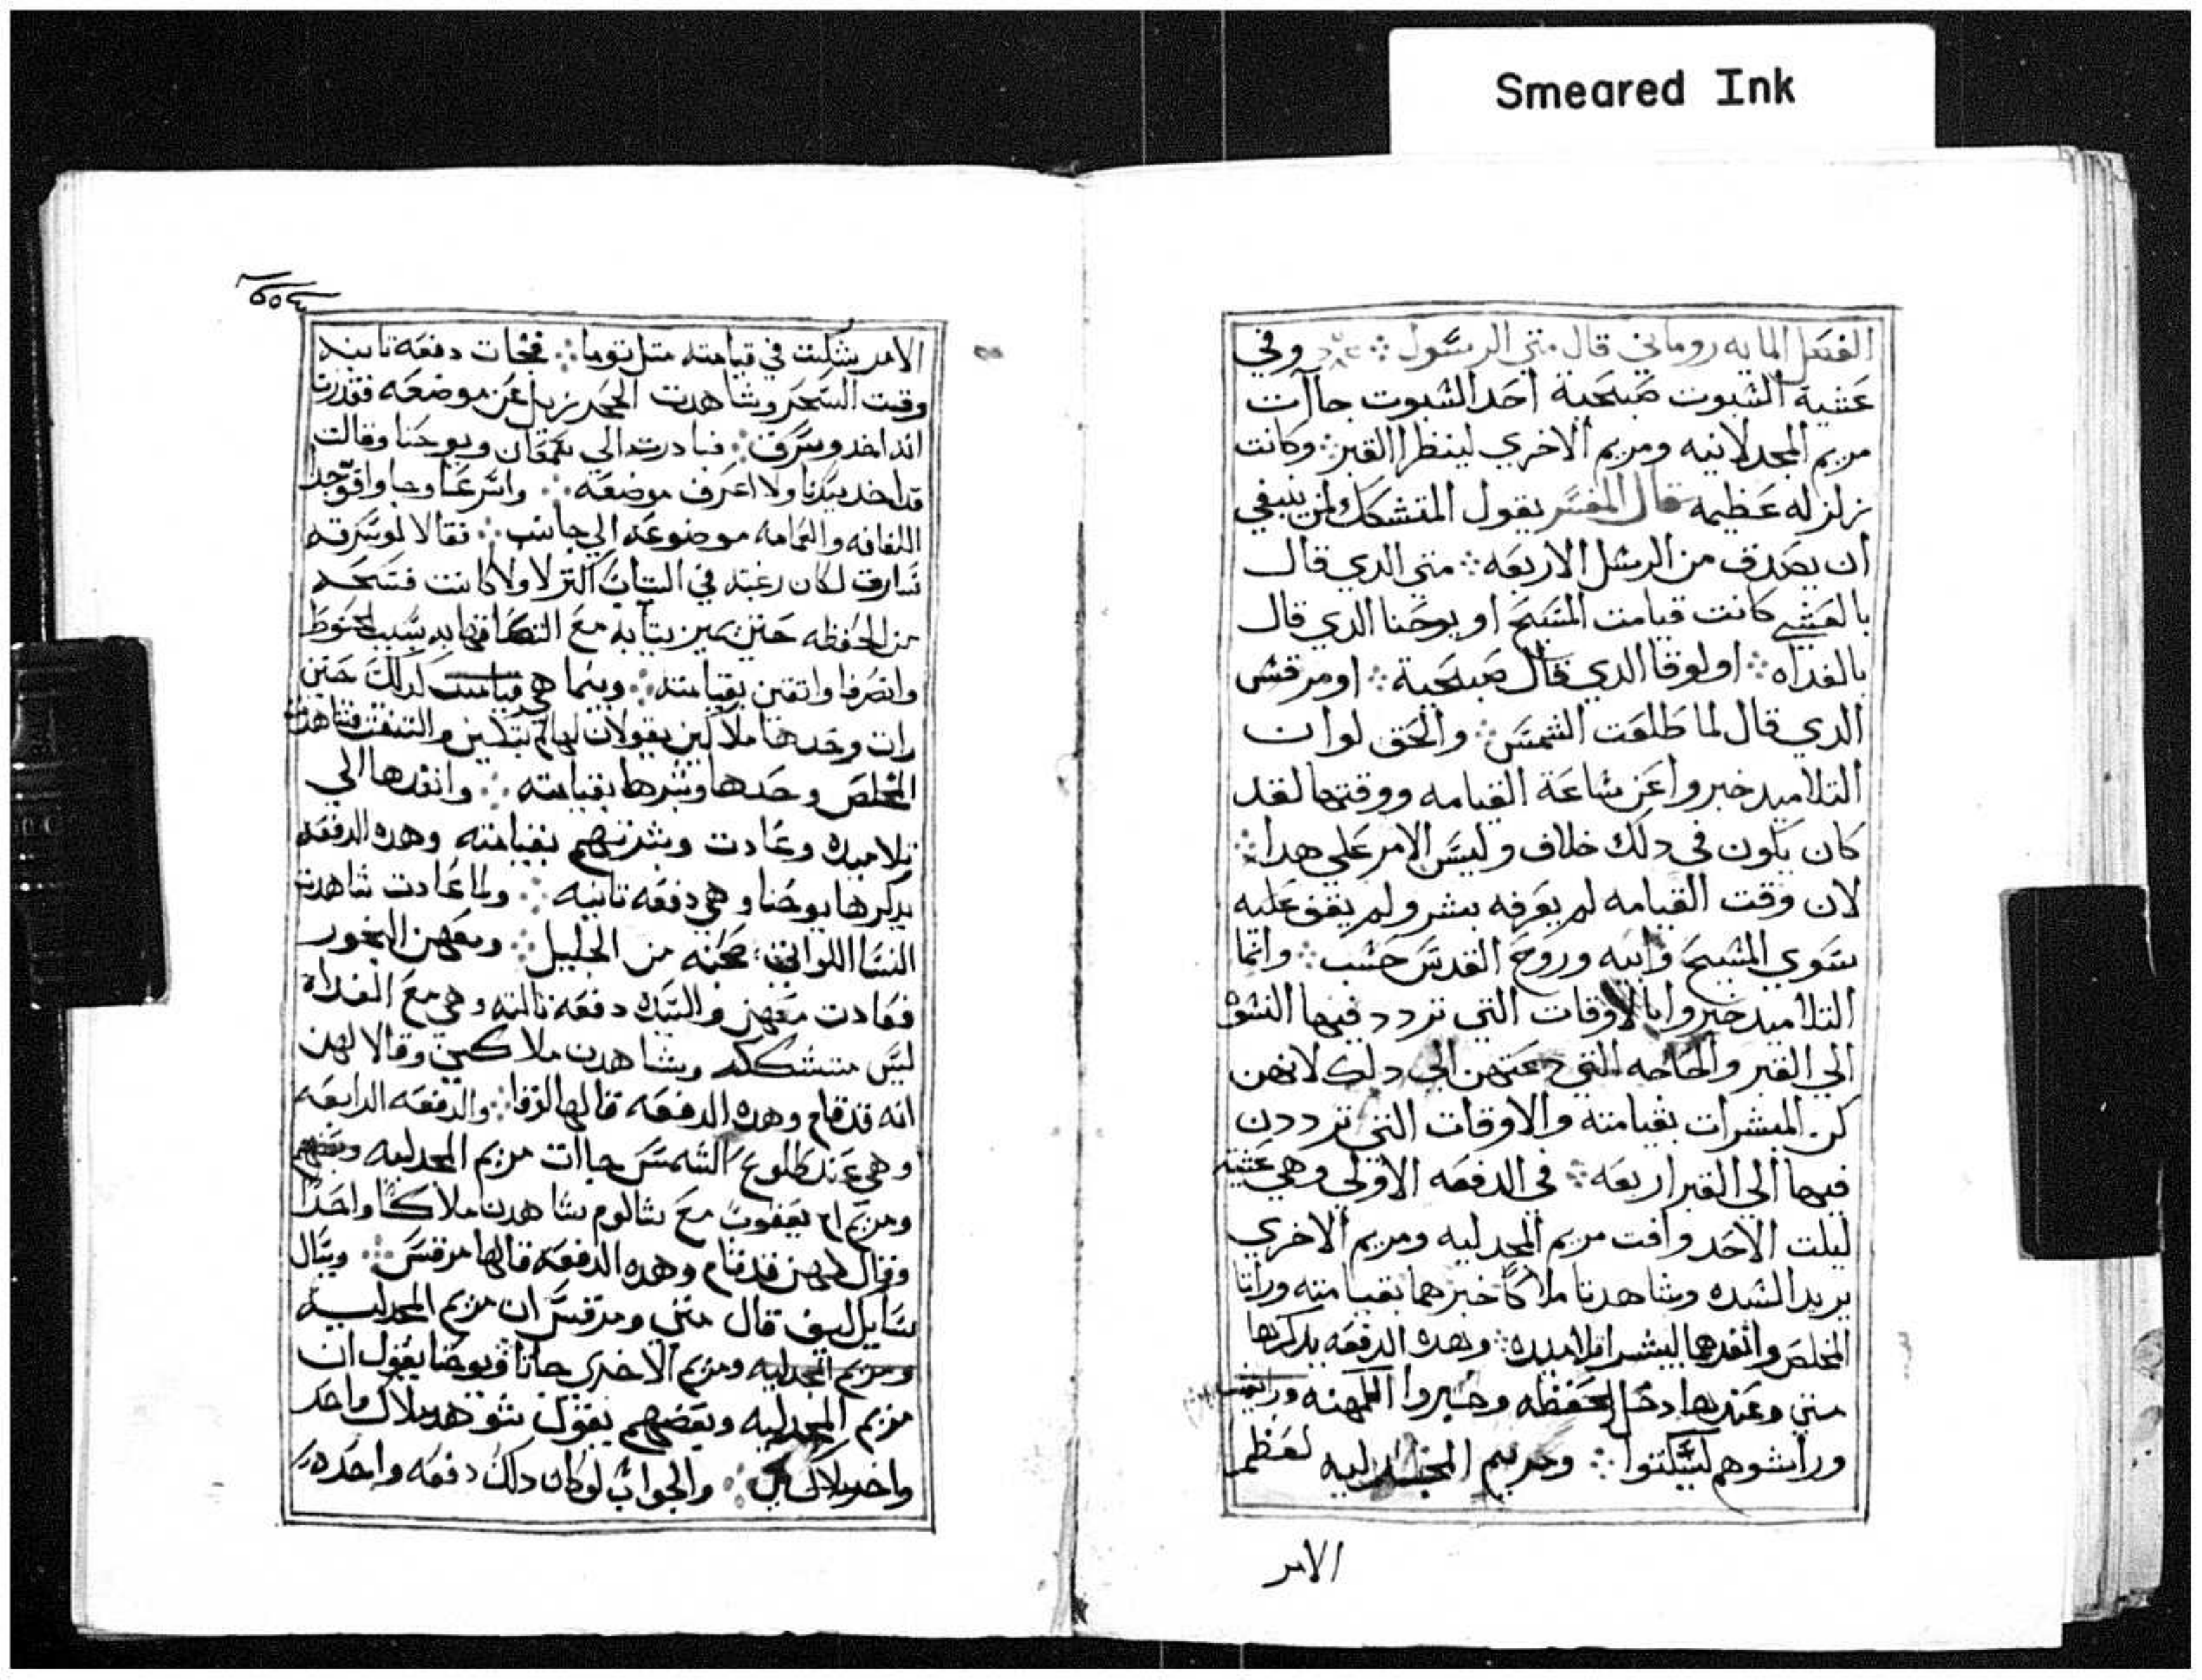 Smeared Ink
الفصل المايه روماني قال متي الرسول ⁘ وفي
عشية السبوت صبيحية احد السبوت جاات
مريم المجدلانيه ومريم الاخري لينظرا القبر ⁘ وكانت
زلزله عظيمه قال المفسر يقول المتشكك لمن ينبغي
ان يصدق من الرسل الاربعه ⁘ متي الدي قال
بالعشي كانت قيامت المسيح او يوحنا الدي قال
بالغداه ⁘ او لوقا الدي قال صبيحية ⁘ او مرقس
الدي قال لما طلعت الشمس ⁘ والحق لو ان
التلاميد خبروا عن ساعة القيامه ووقتها لقد
كان يكون في دلك خلاف وليس الامر علي هدا ⁘
لان وقت القيامه لم يعرفه بشر ولم يقف عليه
سوي المسيح وابيه وروح القدس حسب ⁘ وانما
التلاميد خبروا بالاوقات التي تردد فيها النسوة
الي القبر والحاجه التي دعتهن الي دلك لانهن
كن المبشرات بقيامته والاوقات التي ترددن
فيها الي القبر اربعه ⁘ في الدفعه الاولي وهي عشية
ليلت الاحد وافت مريم المجدليه ومريم الاخري
يريد السيده وشاهدتا ملاكا خبرهما بقيامته وراتا
المخلص وانفدهما ليبشرا تلاميده ⁘ وهده الدفعه يدكرها
متي وعندها دخل الحفظه وخبروا الكهنه
ورا شوهم ليسكتوا ⁘ ومريم المجدليه لعظم
الامر
الامر شكت في قيامته متل توما ⁘ فجات دفعه تانيه
وقت السحر وشاهدت الحجر يزيل عن موضعه فقدرت
انه اخد وسرق ⁘ فبادرت الي سمعان ويوحنا وقالت
قد اخد سيدنا ولا اعرف موضعه ⁘ واسرعا وجا وافوجدا
اللفافه والعمامه موضوعه الي جانب ⁘ فقالا لو سرقه
سارق لكان رغبته في التياب اكتر لا ولا كانت فسحه
من الحفظه حتي يميز تيابه مع التصاقها به بسبب الحنوط
وانصرفا واتقين بقيامته ⁘ وبينما هي كدلك حتي
رات وحدها ملاكين يقولان لها لم تبكين والتفتت فشاهدت
المخلص وحدها وبشرها بقيامته ⁘ وانفدها الي
تلاميده وعادت وبشرتهم بقيامته وهده الدفعه
يدكرها يوحنا وهي دفعه تانيه ⁘ ولما عادت شاهدت
النسا اللواتي صحبنه من الجليل ⁘ ومعهن البخور
فعادت معهن والسيده دفعه تالته وهي مع الغداة
ليس متشككه وشاهدن ملاكين وقالا لهن
انه قد قام وهده الدفعه قالها لوقا ⁘ والدفعه الرابعه
وهي عند طلوع الشمس جاات مريم المجدليه
ومريم ام يعقوب مع سالوم شاهدن ملاكا واحدا
وقال لهن قد قام وهده الدفعه قالها مرقس ⁘ ويسال
سايل كيف قال متي ومرقس ان مريم المجدليه
ومريم المجدليه ومريم الاخري جاتا ويوحنا يقول ان
مريم المجدليه وبعضهم يقول شوهد ملاك واحد
واخر ملاكين ⁘ والجواب لو كان دلك دفعه واحده